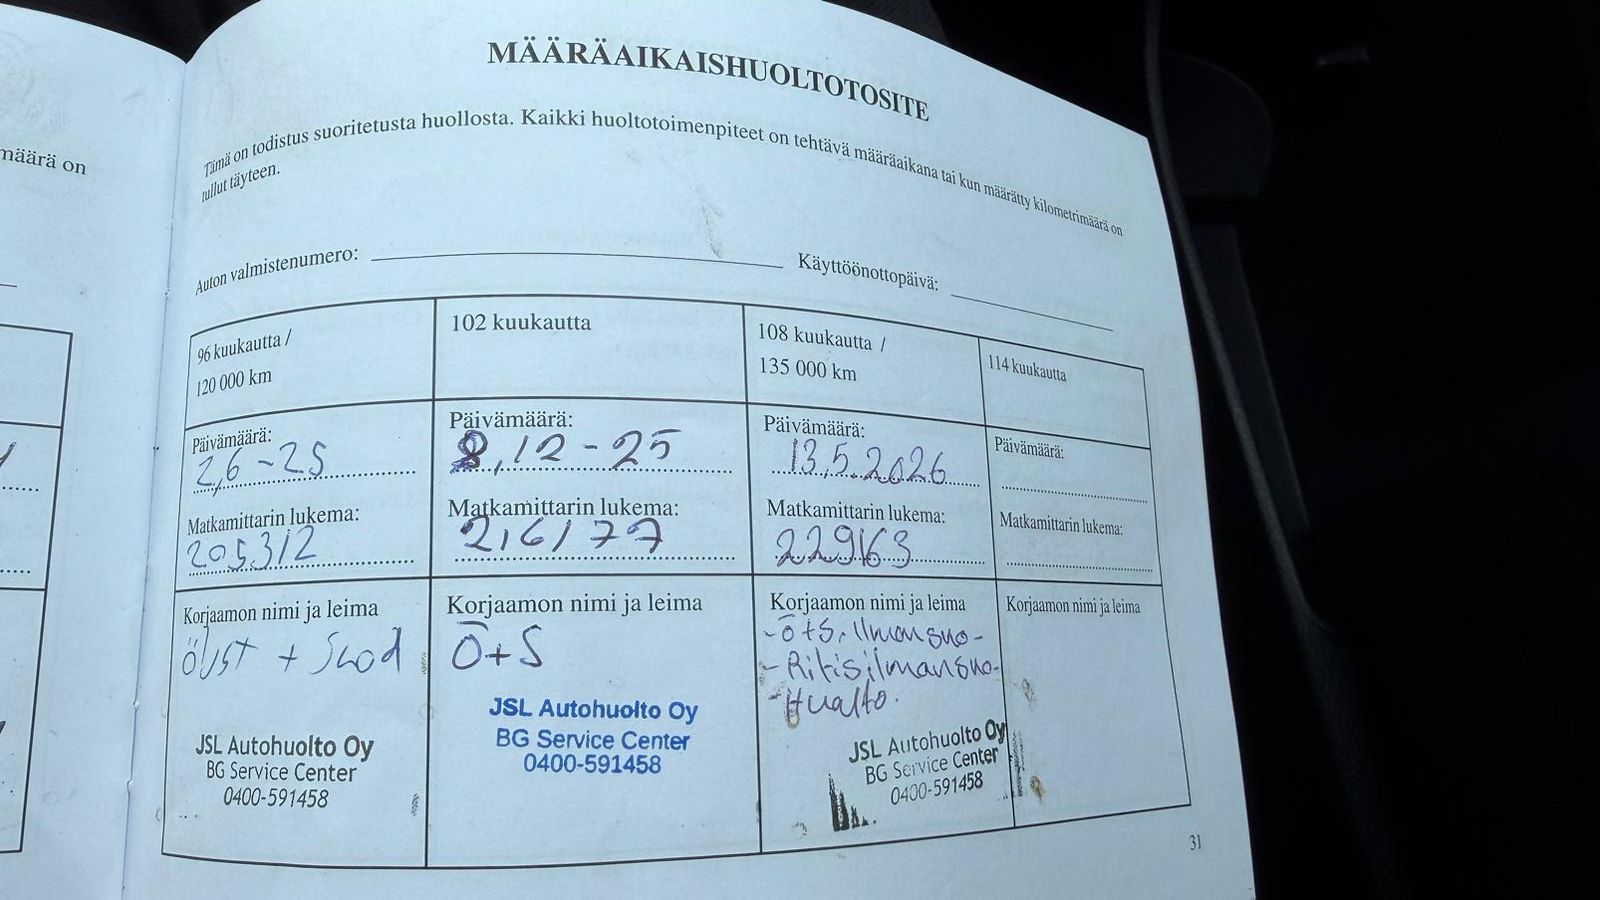 määrä on
MÄÄRÄAIKAISHUOLTOTOSITE
Tämä on todistus suoritetusta huollosta. Kaikki huoltotoimenpiteet on tehtävä määräaikana tai kun määrätty kilometrimäärä on
tullut täyteen.
Auton valmistenumero:
Käyttöönottopäivä:
96 kuukautta /
120 000 km
Päivämäärä:
2,6-25
Matkamittarin lukema:
205312
Korjaamon nimi ja leima
JSL Autohuolto Oy
BG Service Center
0400-591458
102 kuukautta
Päivämäärä:
8,12-25
Matkamittarin lukema:
216177
Korjaamon nimi ja leima
Ö+S
JSL Autohuolto Oy
BG Service Center
0400-591458
108 kuukautta /
135 000 km
Päivämäärä:
13,5.2026
Matkamittarin lukema:
229163
Korjaamon nimi ja leima
-ö+s. Ilmansuo-
-Ritisilmansuo-
-Huolto.
JSL Autohuolto Oy
BG Service Center
0400-591458
114 kuukautta
Päivämäärä:
Matkamittarin lukema:
Korjaamon nimi ja leima
31